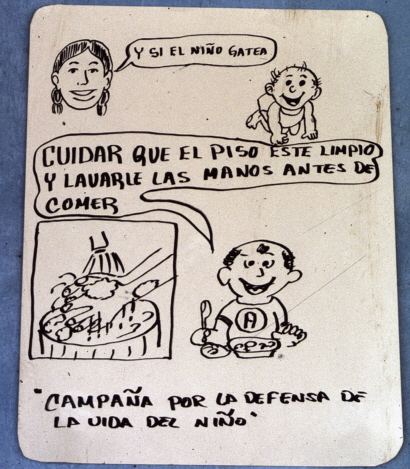 Y SI EL NIÑO GATEA
CUIDAR QUE EL PISO ESTE LIMPIO
Y LAVARLE LAS MANOS ANTES DE
COMER
A
"CAMPAÑA POR LA DEFENSA DE
LA VIDA DEL NIÑO"